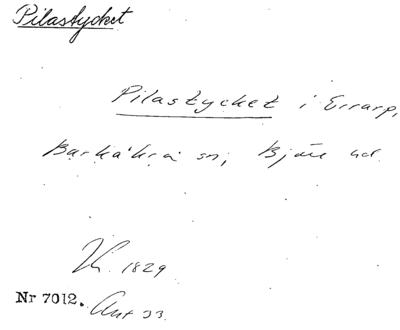 Pilastycket
Pilastycket i Errarp,
Barkåkra sn, Bjäre hd.
1829
Nr 7012. Ant 33